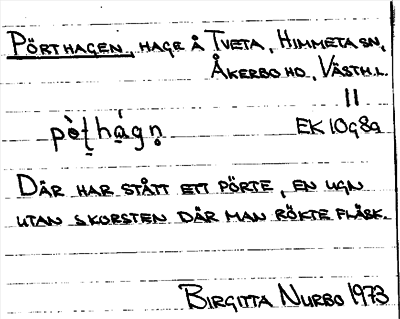 PÖRTHAGEN, HAGE Å TVETA, HIMMETA SN,
ÅKERBO HD, VÄSTM.L.
11
pò̤ṭhá̤gn̥ EK 10g8a
DÄR HAR STÅTT ETT PÖRTE, EN UGN
UTAN SKORSTEN DÄR MAN RÖKTE FLÄSK.
BIRGITTA NURBO 1973